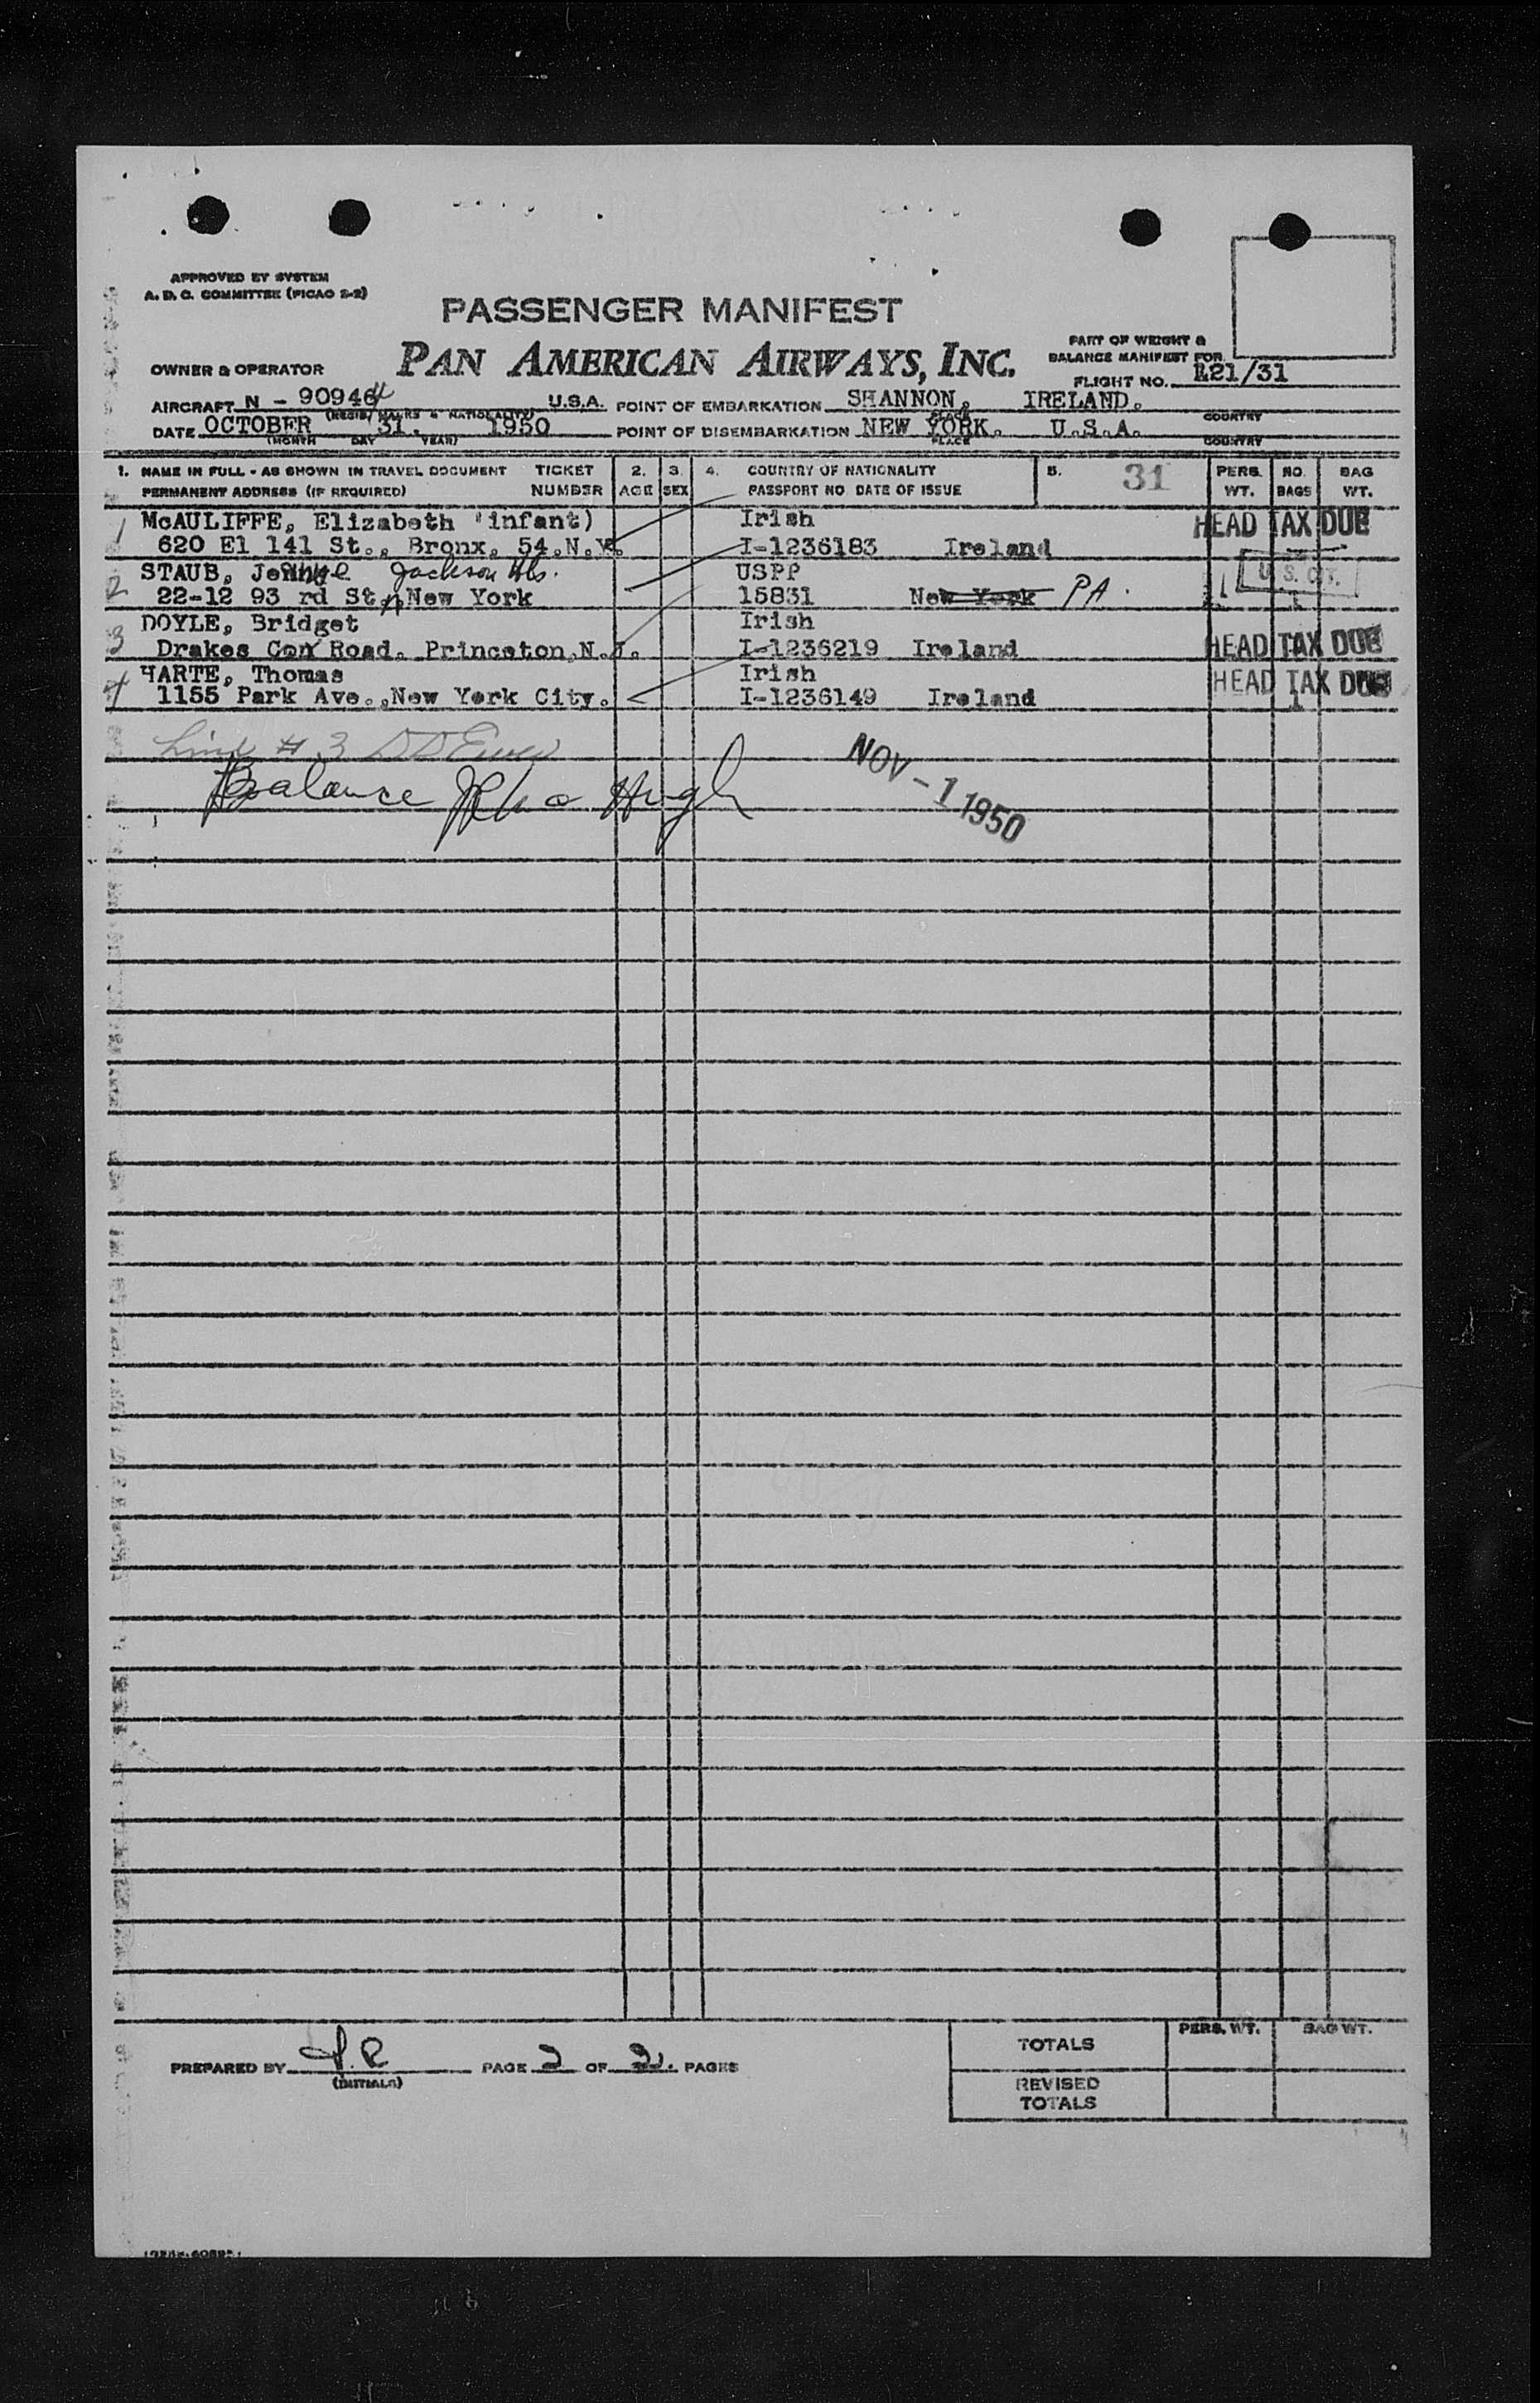 APPROVED BY SYSTEM
A. D. C. COMMITTEE (PICAO 2-2)
PASSENGER MANIFEST
PAN AMERICAN AIRWAYS, INC.
OWNER & OPERATOR
PART OF WEIGHT &
BALANCE MANIFEST FOR
FLIGHT NO. 121/31
AIRCRAFT N - 90946 U.S.A. POINT OF EMBARKATION SHANNON, IRELAND.
PLACE COUNTRY
DATE OCTOBER 31. 1950 POINT OF DISEMBARKATION NEW YORK. U.S.A.
(MONTH DAY YEAR) PLACE COUNTRY
1. NAME IN FULL - AS SHOWN IN TRAVEL DOCUMENT TICKET 2. 3. 4. COUNTRY OF NATIONALITY 5. 31 PERS. NO. BAG
PERMANENT ADDRESS (IF REQUIRED) NUMBER AGE SEX PASSPORT NO DATE OF ISSUE WT. BAGS WT.
1 McAULIFFE, Elizabeth (infant) Irish HEAD TAX DUE
620 El 141 St., Bronx, 54.N.Y. I-1236183 Ireland
2 STAUB, Jackson Hts. USPP U.S. CIT.
22-12 93 rd St, New York 15831 New York PA.
3 DOYLE, Bridget Irish
Drakes Road. Princeton,N.J. I-1236219 Ireland HEAD TAX DUE
4 HARTE, Thomas Irish HEAD TAX DUE
1155 Park Ave.,New York City. I-1236149 Ireland
Line # 3
Balance
NOV - 1 1950
PREPARED BY J.R PAGE 2 OF 2. PAGES
(INITIALS)
TOTALS PERS. WT. BAG WT.
REVISED
TOTALS